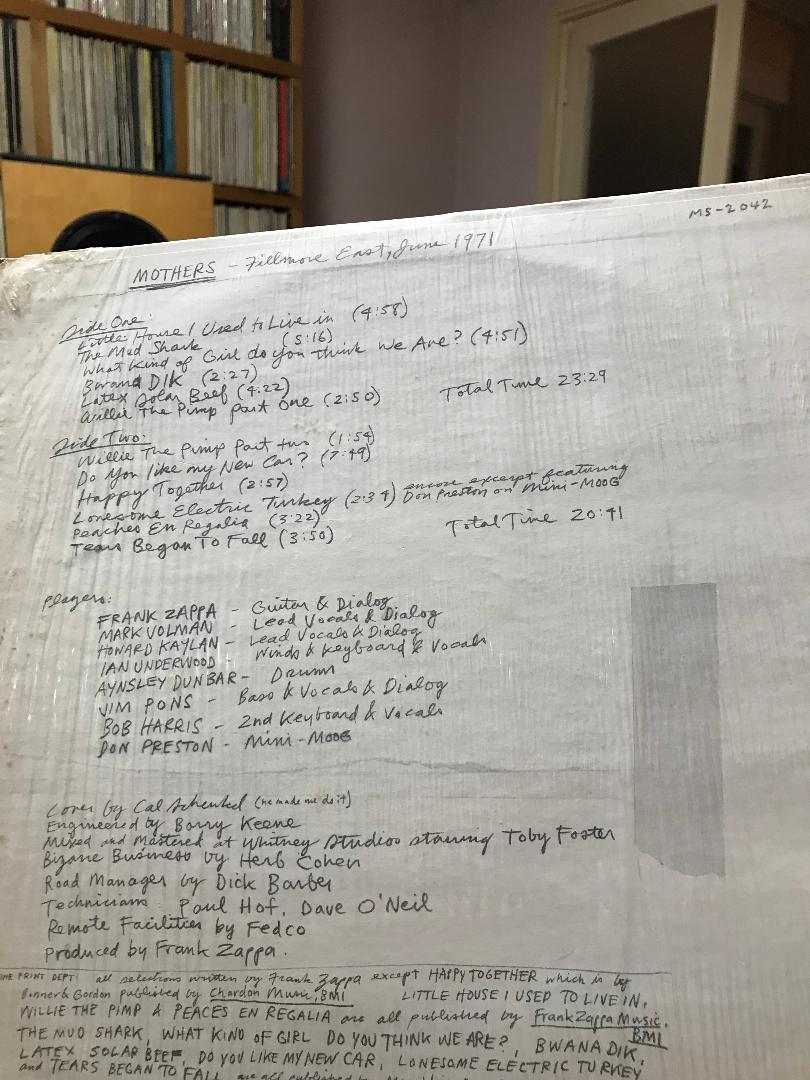 MS-2042
MOTHERS - Fillmore East, June 1971
Side One:
Little House I Used to Live in (4:58)
The Mud Shark (5:16)
What Kind of Girl do you think We Are? (4:51)
Bwana Dik (2:27)
Latex Solar Beef (4:22)
Willie The Pimp part one (2:50) Total Time 23:29
Side Two:
Willie The Pimp Part two (1:54)
Do You like my New Car? (7:49)
Happy Together (2:57)
Lonesome Electric Turkey (2:34) encore excerpt featuring Don Preston on Mini-MOOG
Peaches En Regalia (3:22)
Tears Began To Fall (3:50) Total Time 20:41
Players:
FRANK ZAPPA - Guitar & Dialog
MARK VOLMAN - Lead Vocals & Dialog
HOWARD KAYLAN - Lead Vocals & Dialog
IAN UNDERWOOD Winds & Keyboard & Vocals
AYNSLEY DUNBAR - Drums
JIM PONS - Bass & Vocals & Dialog
BOB HARRIS - 2nd Keyboard & Vocals
DON PRESTON - Mini-MOOG
Cover by Cal Schenkel (he made me do it)
Engineered by Barry Keene
Mixed and Mastered at Whitney Studios starring Toby Foster
Bizarre Business by Herb Cohen
Road Manager by Dick Barber
Technicians: Paul Hof, Dave O'Neil
Remote Facilities by Fedco
Produced by Frank Zappa.
PRINT DEPT: all selections written by Frank Zappa except HAPPY TOGETHER which is by
Bonner & Gordon published by Chardon Music, BMI LITTLE HOUSE I USED TO LIVE IN,
WILLIE THE PIMP & PEACES EN REGALIA are all published by Frank Zappa Music, BMI
THE MUD SHARK, WHAT KIND OF GIRL DO YOU THINK WE ARE?, BWANA DIK,
LATEX SOLAR BEEF, DO YOU LIKE MY NEW CAR, LONESOME ELECTRIC TURKEY
and TEARS BEGAN TO FALL are all published by